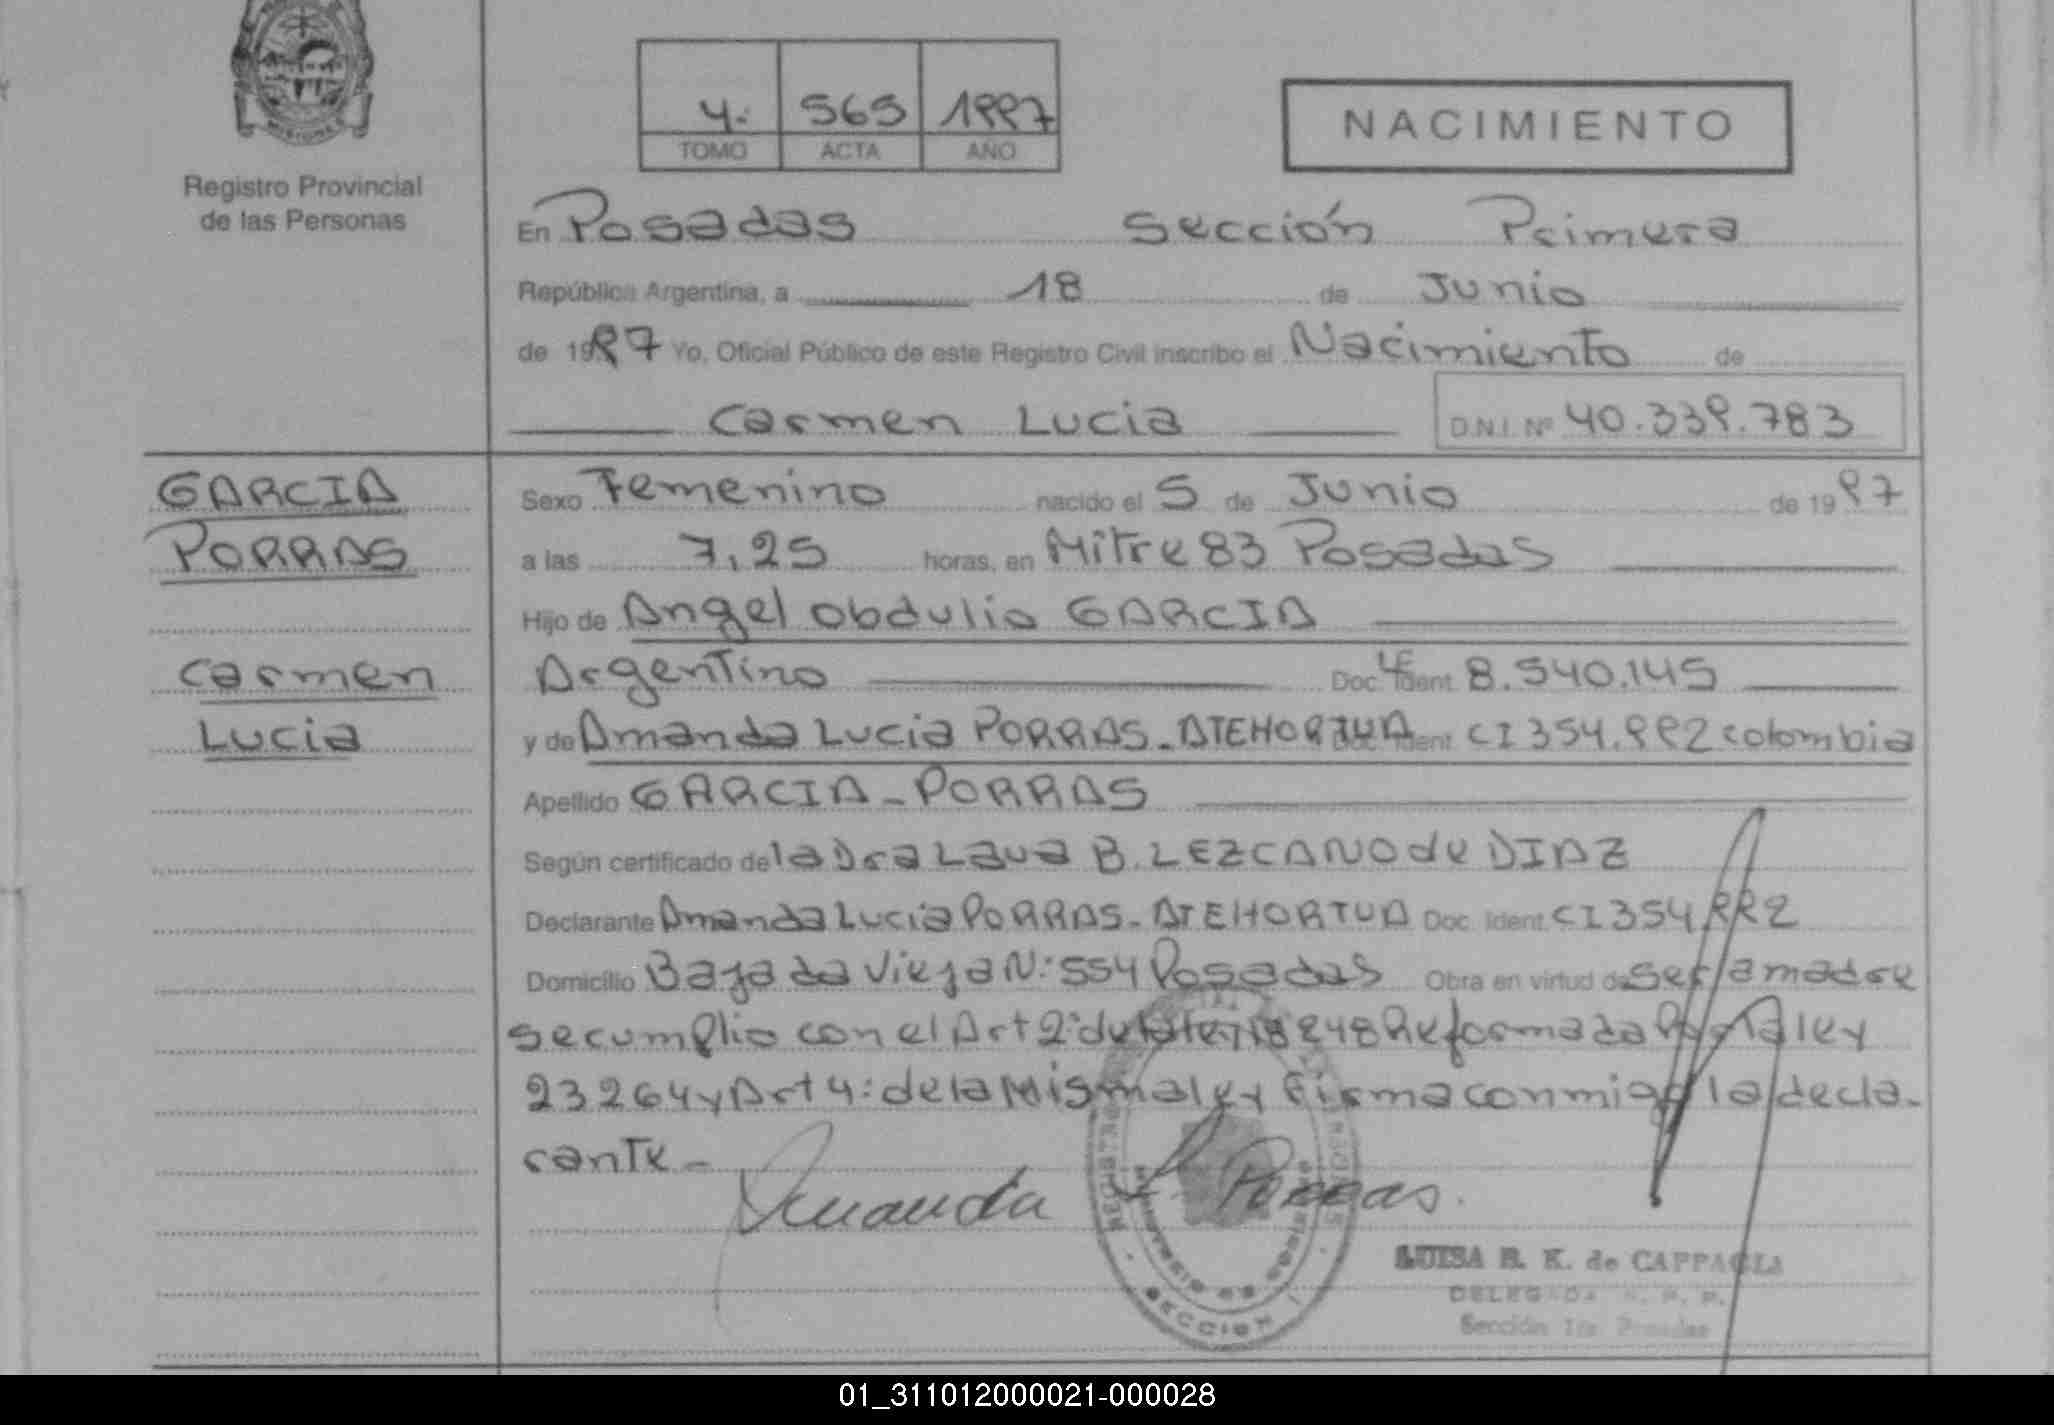 MISIONES
Registro Provincial
de las Personas
4: 565 1997
TOMO ACTA AÑO
NACIMIENTO
En Posadas Sección Primera
República Argentina, a 18 de Junio
de 1997 Yo, Oficial Público de este Registro Civil inscribo el Nacimiento de
Carmen Lucia D.N.I. Nº 40.339.783
GARCIA
PORRAS
Carmen
Lucia
Sexo Femenino nacido el 5 de Junio de 1997
a las 7,25 horas, en Mitre 83 Posadas
Hijo de Angel Obdulio GARCIA
Argentino Doc. Ident. LE 8.540.145
y de Amanda Lucia PORRAS-ATEHORTUA Doc. Ident. CI 354.992 Colombia
Apellido GARCIA-PORRAS
Según certificado de la Dra Laua B. LEZCANO de DIAZ
Declarante Amanda Lucia PORRAS-ATEHORTUA Doc. Ident. CI 354.992
Domicilio Bajada Vieja N: 554 Posadas Obra en virtud de ser la madre
se cumplio con el Art 2: de la ley 18248 Reformada Por la ley
23264 y Art 4: de la Misma ley firma conmigo la decla-
rante-
Amanda L. Porras.
SECCION 1
LUISA B. K. de CAPPAGLIA
DELEGADA R. P. P.
Sección 1ra Posadas
01_311012000021-000028